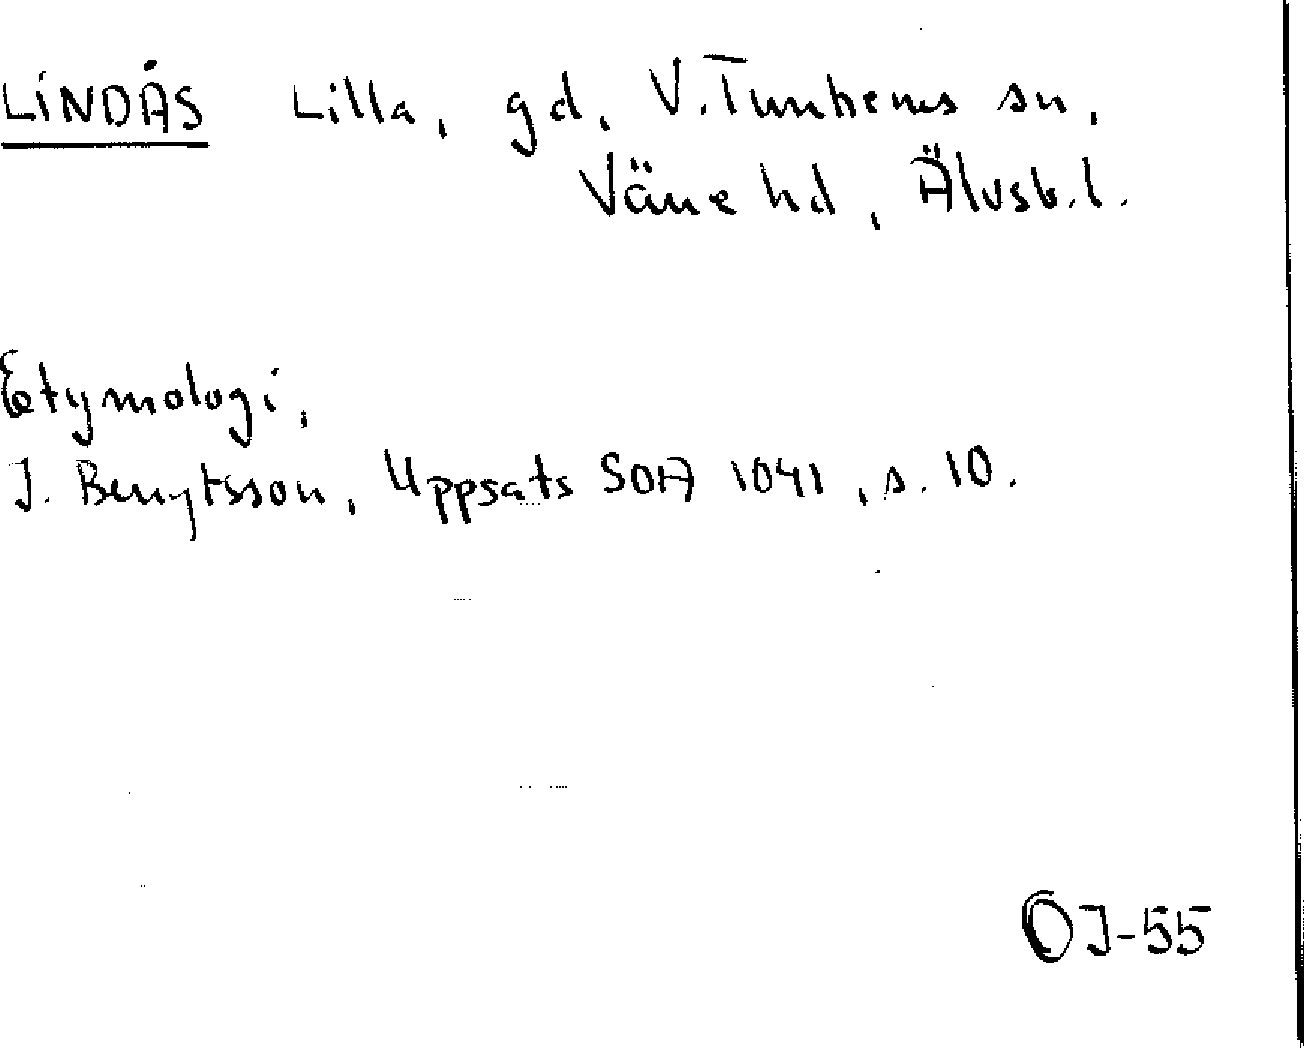 LINDÅS Lilla, gd, V. Tunhems sn,
Väne hd, Älvsb. l.
Etymologi,
J. Bengtsson, Uppsats SOA 1041, s. 10.
OJ-55